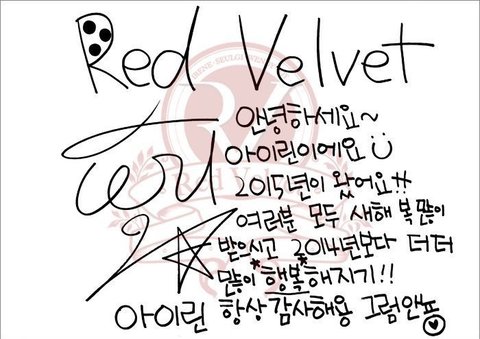 Red Velvet
안녕하세요~
아이린이에요
2015년이 왔어요!!
여러분 모두 새해 복 많이
받으시고 2014년보다 더더
많이 *행복*해지기!!
아이린 항상 감사해용 그럼안뇽